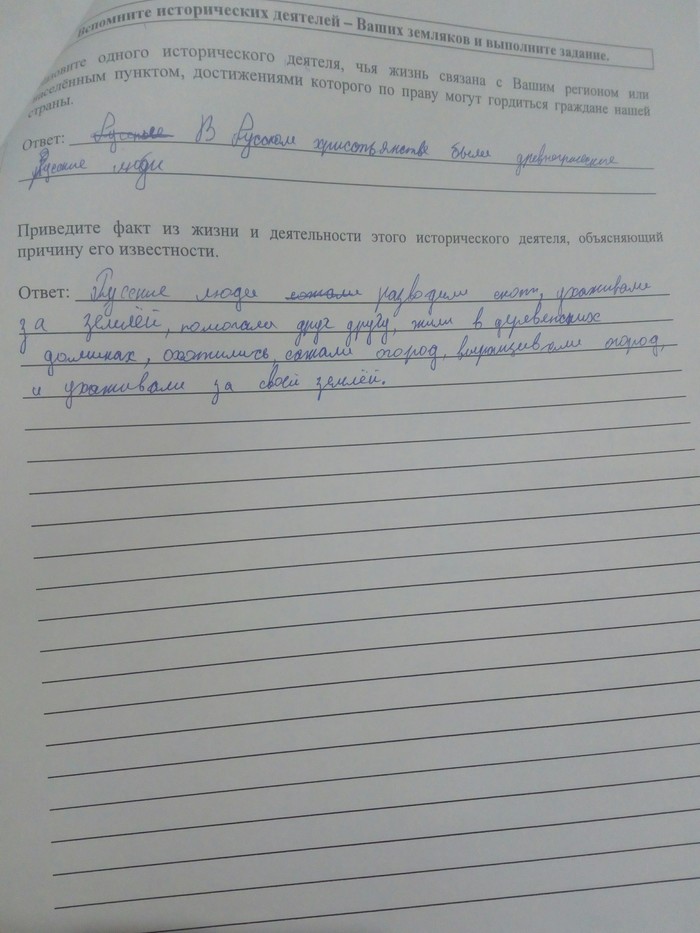 Вспомните исторических деятелей – Ваших земляков и выполните задание.
одного исторического деятеля, чья жизнь связана с Вашим регионом или
населённым пунктом, достижениями которого по праву могут гордиться граждане нашей
страны.
Ответ: Русские В Русском христьянстве были древнегреческие
Русские люди
Приведите факт из жизни и деятельности этого исторического деятеля, объясняющий
причину его известности.
Ответ: Русские люди сажали разводили скот, ухаживали
за землёй, помогали друг другу, жили в деревенских
домиках, охотились, сажали огород, выращивали огород,
и ухаживали за своей землёй.